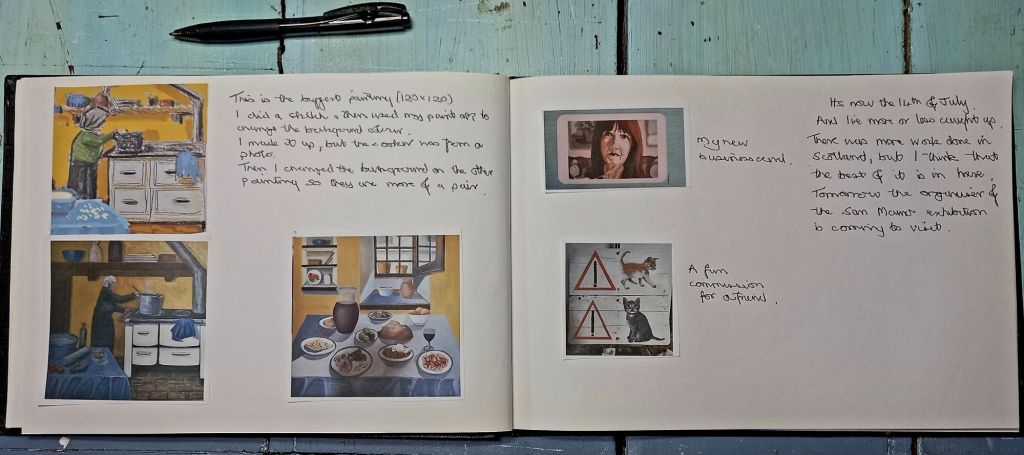 This is the biggest painting (120x120)
I did a sketch & then used my paints to
change the background
I made it up, but the cooker was from a
photo.
Then I changed the background on the other
painting so they are more of a pair.
My new
business card.
A fun
commission
for a friend.
Its now the 14th of July.
And I'm more or less caught up.
There was more work done in
Scotland, but I think that
the best of it is in here.
Tomorrow the organiser of
the San exhibition
is coming to visit.